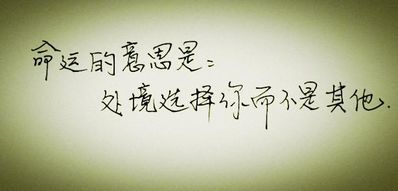 命运的意思是:
处境选择你而不是其他.